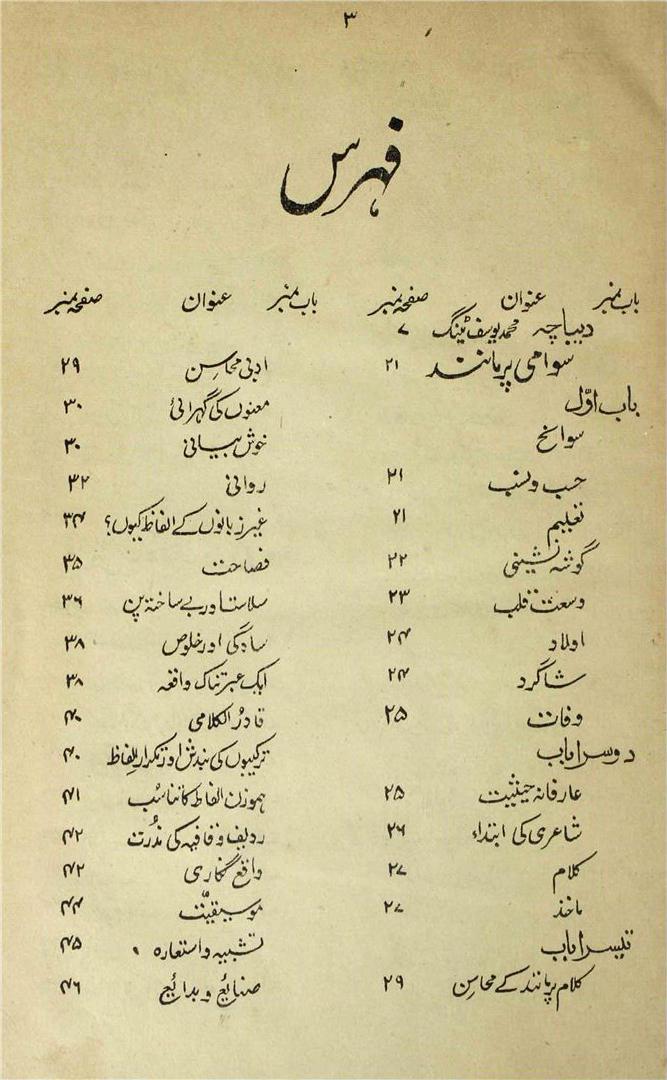 ۳
فہرس
باب نمبر عنوان صفحہ نمبر
دیباچہ محمد یوسف ٹینگ ۷
سوامی پرمانند ۲۱
باب اوّل
سوانح
حسب و نسب ۲۱
تعلیم ۲۱
گوشہ نشینی ۲۲
وسعت قلب ۲۳
اولاد ۲۴
شاگرد ۲۴
وفات ۲۵
دوسرا باب
عارفانہ حیثیت ۲۵
شاعری کی ابتداء ۲۶
کلام ۲۷
ماخذ ۲۷
تیسرا باب
کلام پرمانند کے محاسن ۲۹
باب نمبر عنوان صفحہ نمبر
ادبی محاسن ۲۹
معنوں کی گہرائی ۳۰
خوش بیانی ۳۰
روانی ۳۲
غیر زبانوں کے الفاظ کیوں؟ ۳۴
فصاحت ۳۵
سلاست اور بے ساختہ پن ۳۶
سادگی اور خلوص ۳۸
ایک عبرتناک واقعہ ۳۸
قادرُ الکلامی ۴۰
ترکیبوں کی بندش اور تکرارِ الفاظ ۴۰
ہموزن الفاظ کا تناسُب ۴۱
ردیف و قافیہ کی نُدرت ۴۲
واقع نگاری ۴۲
موسیقیّت ۴۴
تشبیہ و استعارہ ۴۵
صنایٔع و بدایٔع ۴۶